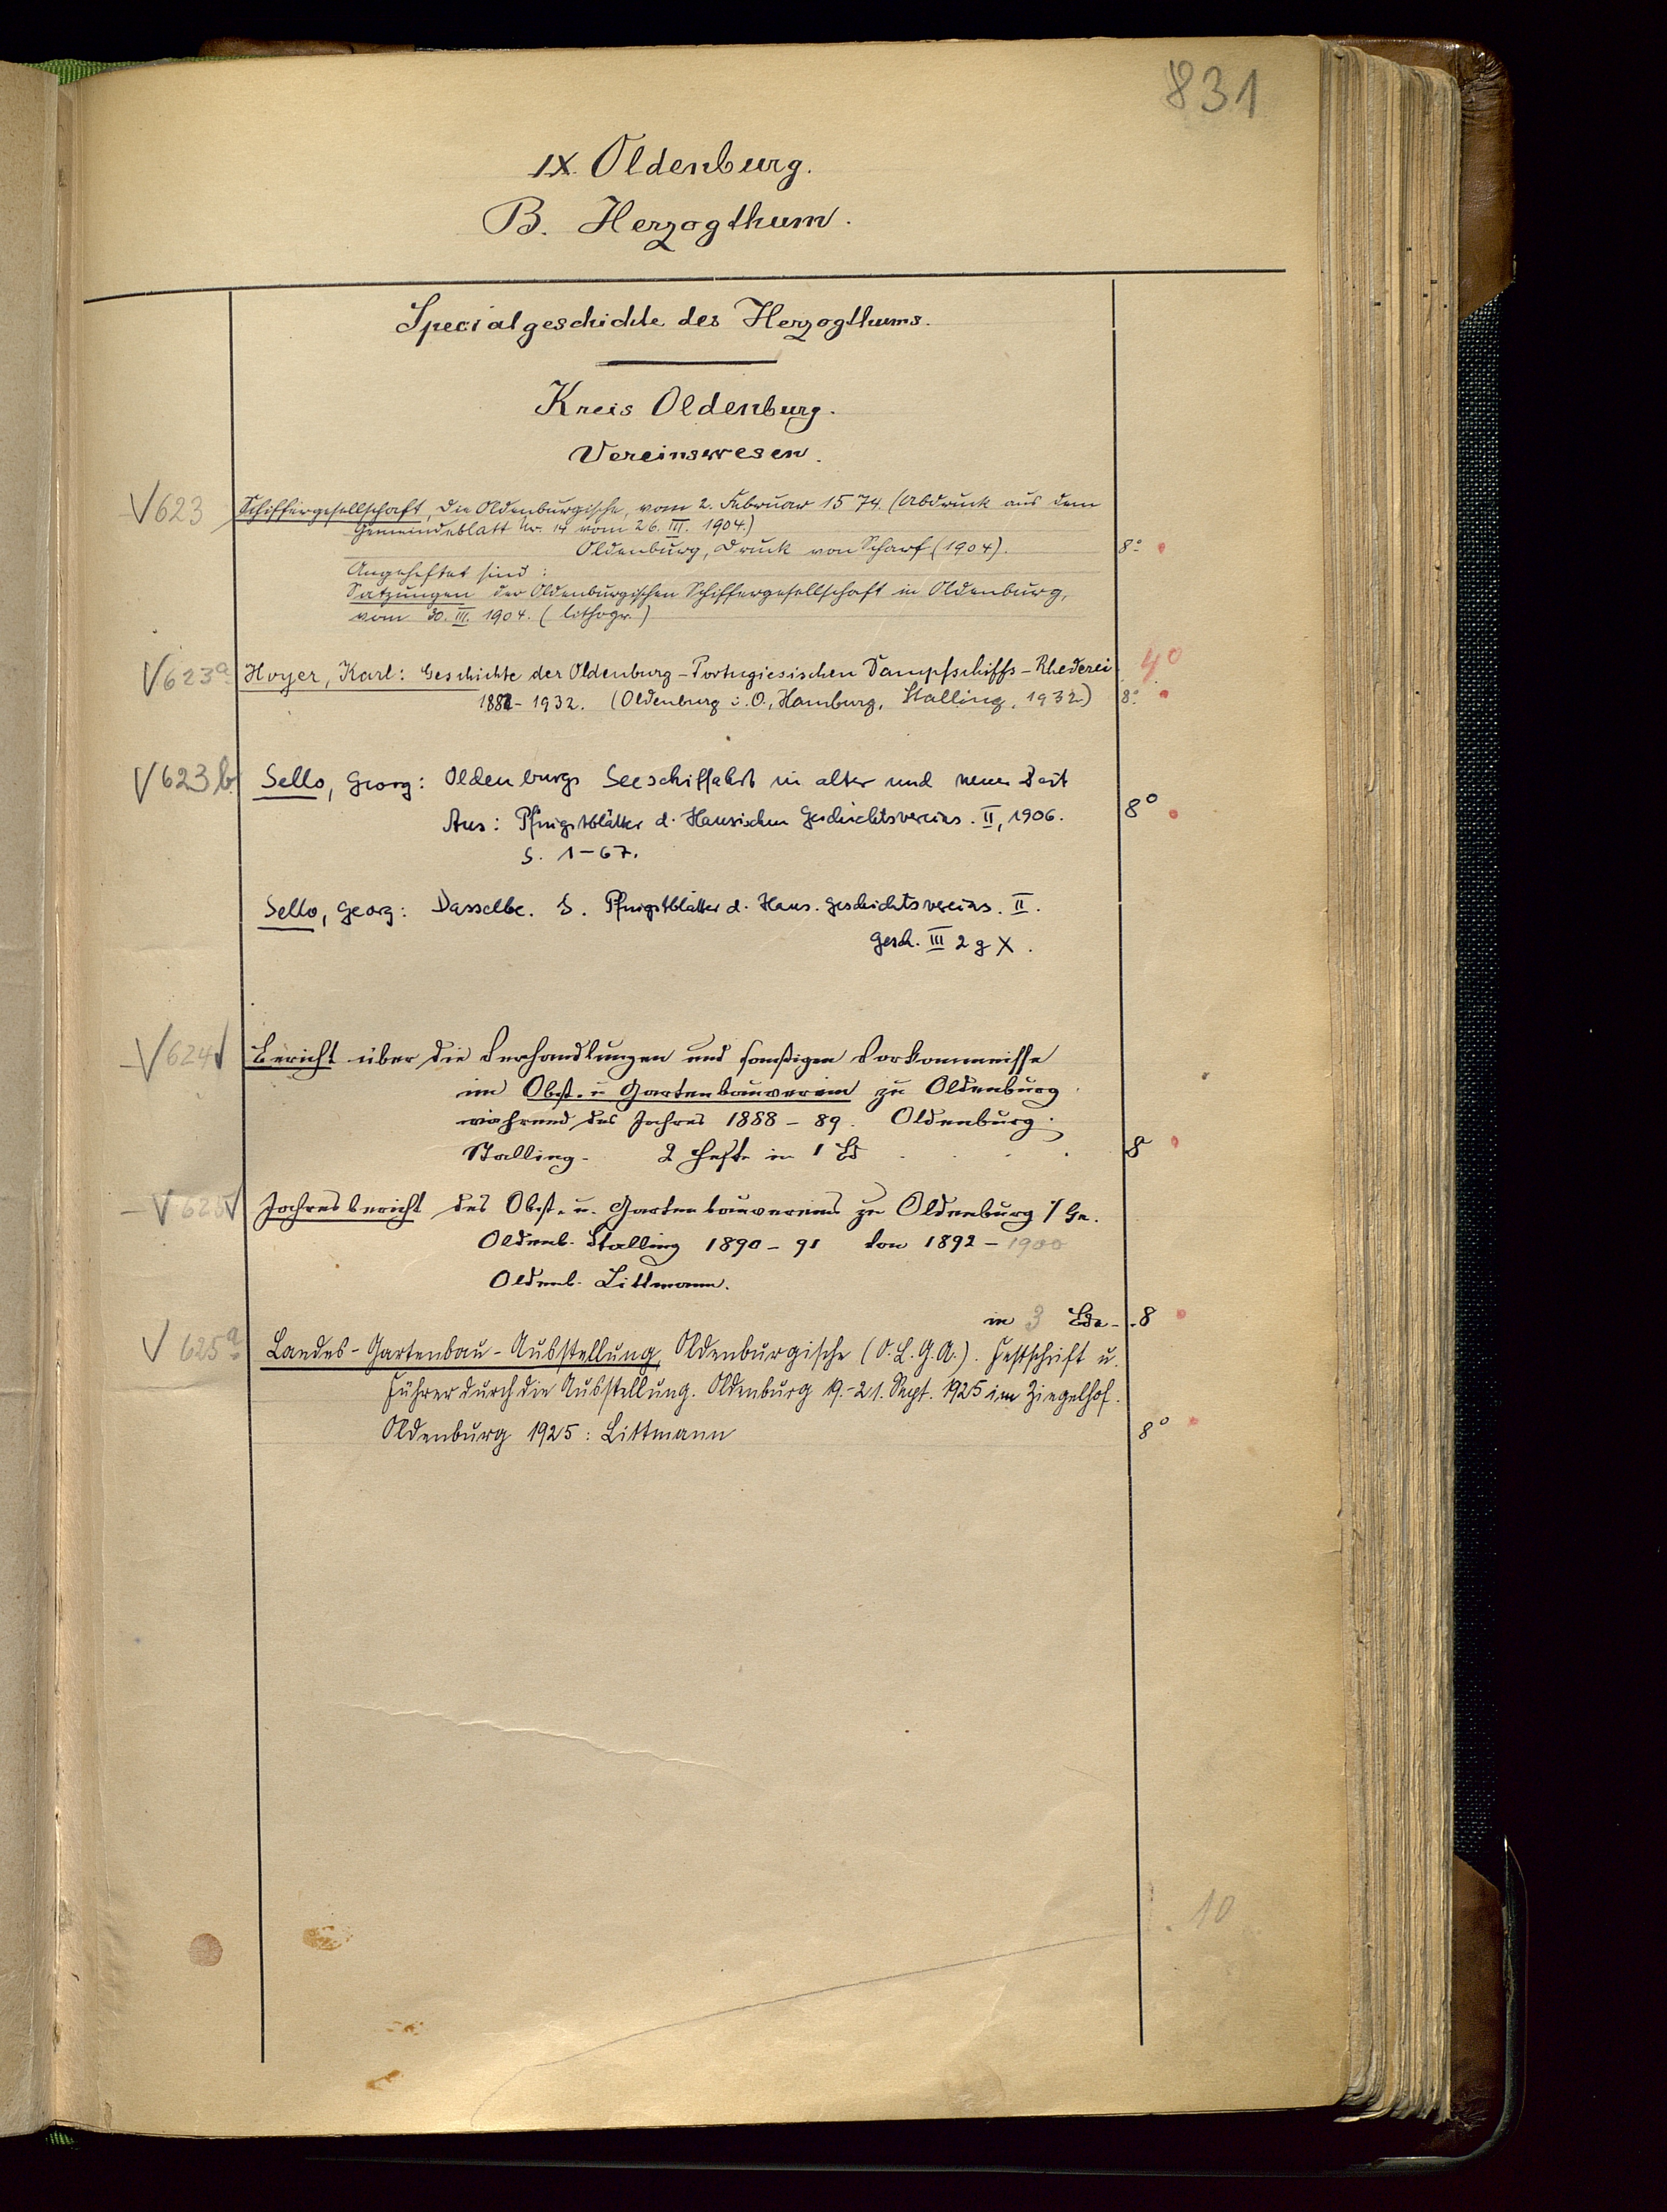 831
IX. Oldenburg.
B. Herzogthum.
Specialgeschichte des Herzogthums.
Kreis Oldenburg.
Vereinswesen.
V 623 Schiffergesellschaft, die Oldenburgische, vom 2. Februar 1574. (Abdruck aus dem
Gemeindeblatt Nr. 14 vom 26. III. 1904.)
Oldenburg, Druck von Scharf (1904). 8°
Angeheftet sind:
Satzungen der Oldenburgischen Schiffergesellschaft in Oldenburg,
vom 30. III. 1904. (lithogr.)
V 623a Hoyer, Karl: Geschichte der Oldenburg-Portugiesischen Dampfschiffs-Rhederei 4°
1882-1932. (Oldenburg i. O., Hamburg, Stalling, 1932) 8°
V 623b Sello, Georg: Oldenburgs Seeschiffahrt in alter und neuer Zeit
Aus: Pfingstblätter d. Hansischen Geschichtsvereins. II, 1906. 8°
S. 1-67.
Sello, Georg: Dasselbe. S. Pfingstblätter d. Hans. Geschichtsvereins. II.
Gesch. III 2 g X.
V 624 Bericht über die Verhandlungen und sonstigen Vorkommnisse
im Obst- u Gartenbauverein zu Oldenburg
während des Jahres 1888-89. Oldenburg.
Stalling. 2 Hefte in 1 Bd 8
V 625 Jahresbericht des Obst- u. Gartenbauvereins zu Oldenburg i/Gr.
Oldenb. Stalling 1890-91 von 1892-1900
Oldenb. Littmann.
in 3 Bde. 8
V 625a Landes-Gartenbau-Ausstellung, Oldenburgische (O.L.G.A.). Festschrift u.
Führer durch die Ausstellung. Oldenburg 19.-21. Sept. 1925 im Ziegelhof.
Oldenburg 1925: Littmann 8°
10